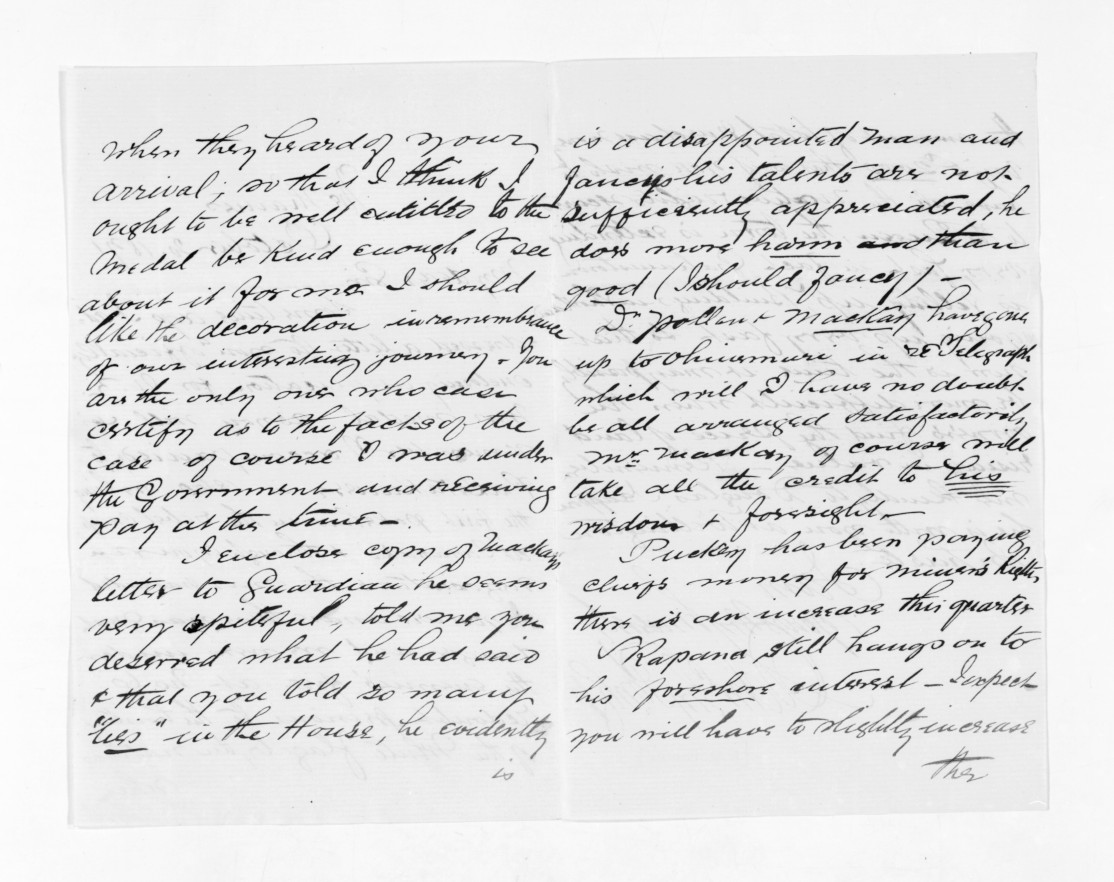 when they heard of your
arrival; so that I think I
ought to be well entitled to the
medal be kind enough to see
about it for me I should
like the decoration in remembrance
of our interesting journey. You
are the only one who can
certify as to the facts of the
case of course I was under
the Government and receiving
pay at the time —
I enclose copy of Mackays
letter to Guardian he seems
very spiteful, told me you
deserved what he had said
& that you told so many
"lies" in the House, he evidently
is
is a disappointed man and
fancys his talents are not
sufficiently appreciated, he
does more harm and than
good (I should fancy) —
Dr. Pollen & Mackay have gone
up to Ohinemuri in re Telegraph
which will I have no doubt
be all arranged satisfactorily
Mr. Mackay of course will
take all the credit to his
wisdom & foresight —
Puckey has been paying
chiefs money for miner's rights
there is an increase this quarter
Rapana still hangs on to
his foreshore interest — I expect
you will have to slightly increase
the